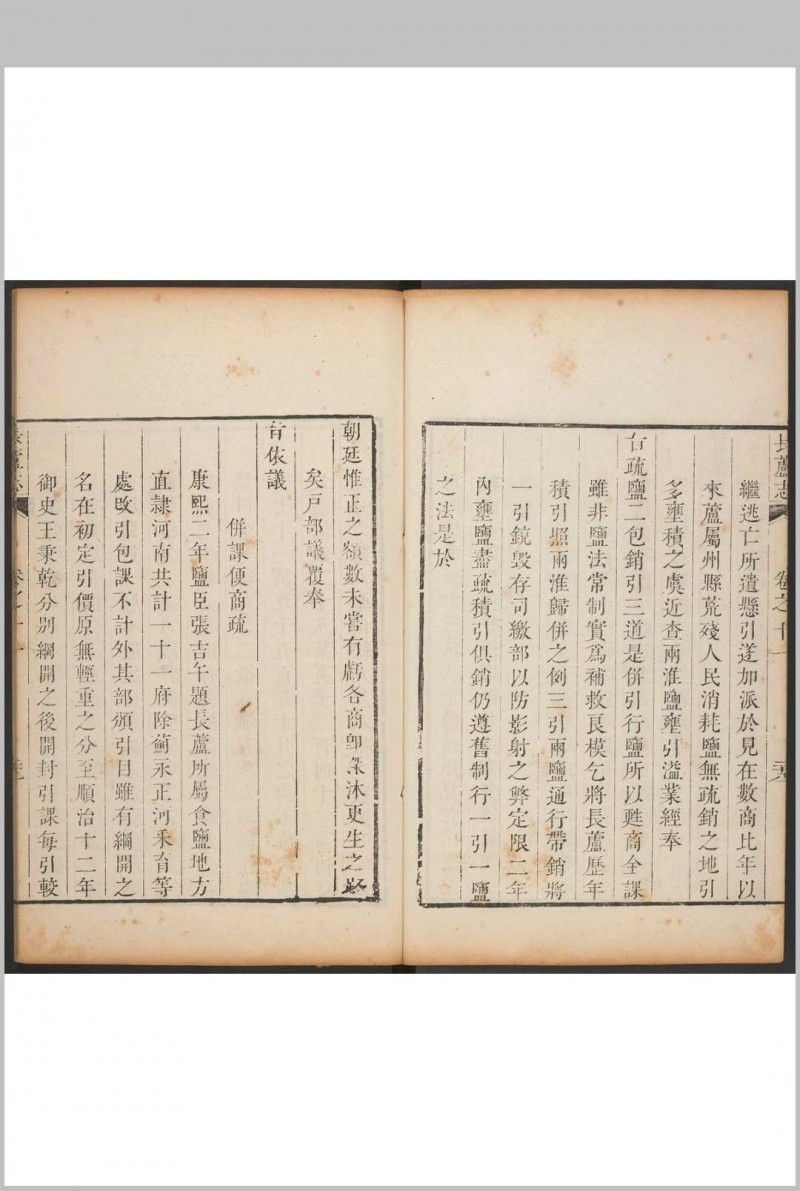 長蘆志 卷之十一
繼逃亡所遺懸引遂加派於見在數商比年以
來蘆屬州縣荒殘人民消耗鹽無疏銷之地引
多壅積之虞近查兩淮鹽壅引溢業經奉
旨疏鹽二包銷引三道是併引行鹽所以甦商全課
雖非鹽法常制實爲補救良模乞將長蘆歷年
積引照兩淮歸併之例三引兩鹽通行帶銷將
一引鏡毁存司繳部以防影射之弊定限二年
內壅鹽盡疏積引俱銷仍遵舊制行一引一鹽
之法是於
朝廷惟正之額數未嘗有虧各商卽沐更生之
矣戸部議覆奉
旨依議
併課便商疏
康熙二年鹽臣張吉午題長蘆所屬食鹽地方
直隷河南共計一十一府除薊永正河釆育等
處改引包課不計外其部頒引目雖有綱開之
名在初定引價原無輕重之分至順治十二年
御史王秉乾分别綱開之後開封引課每引較
長蘆志 卷之十一